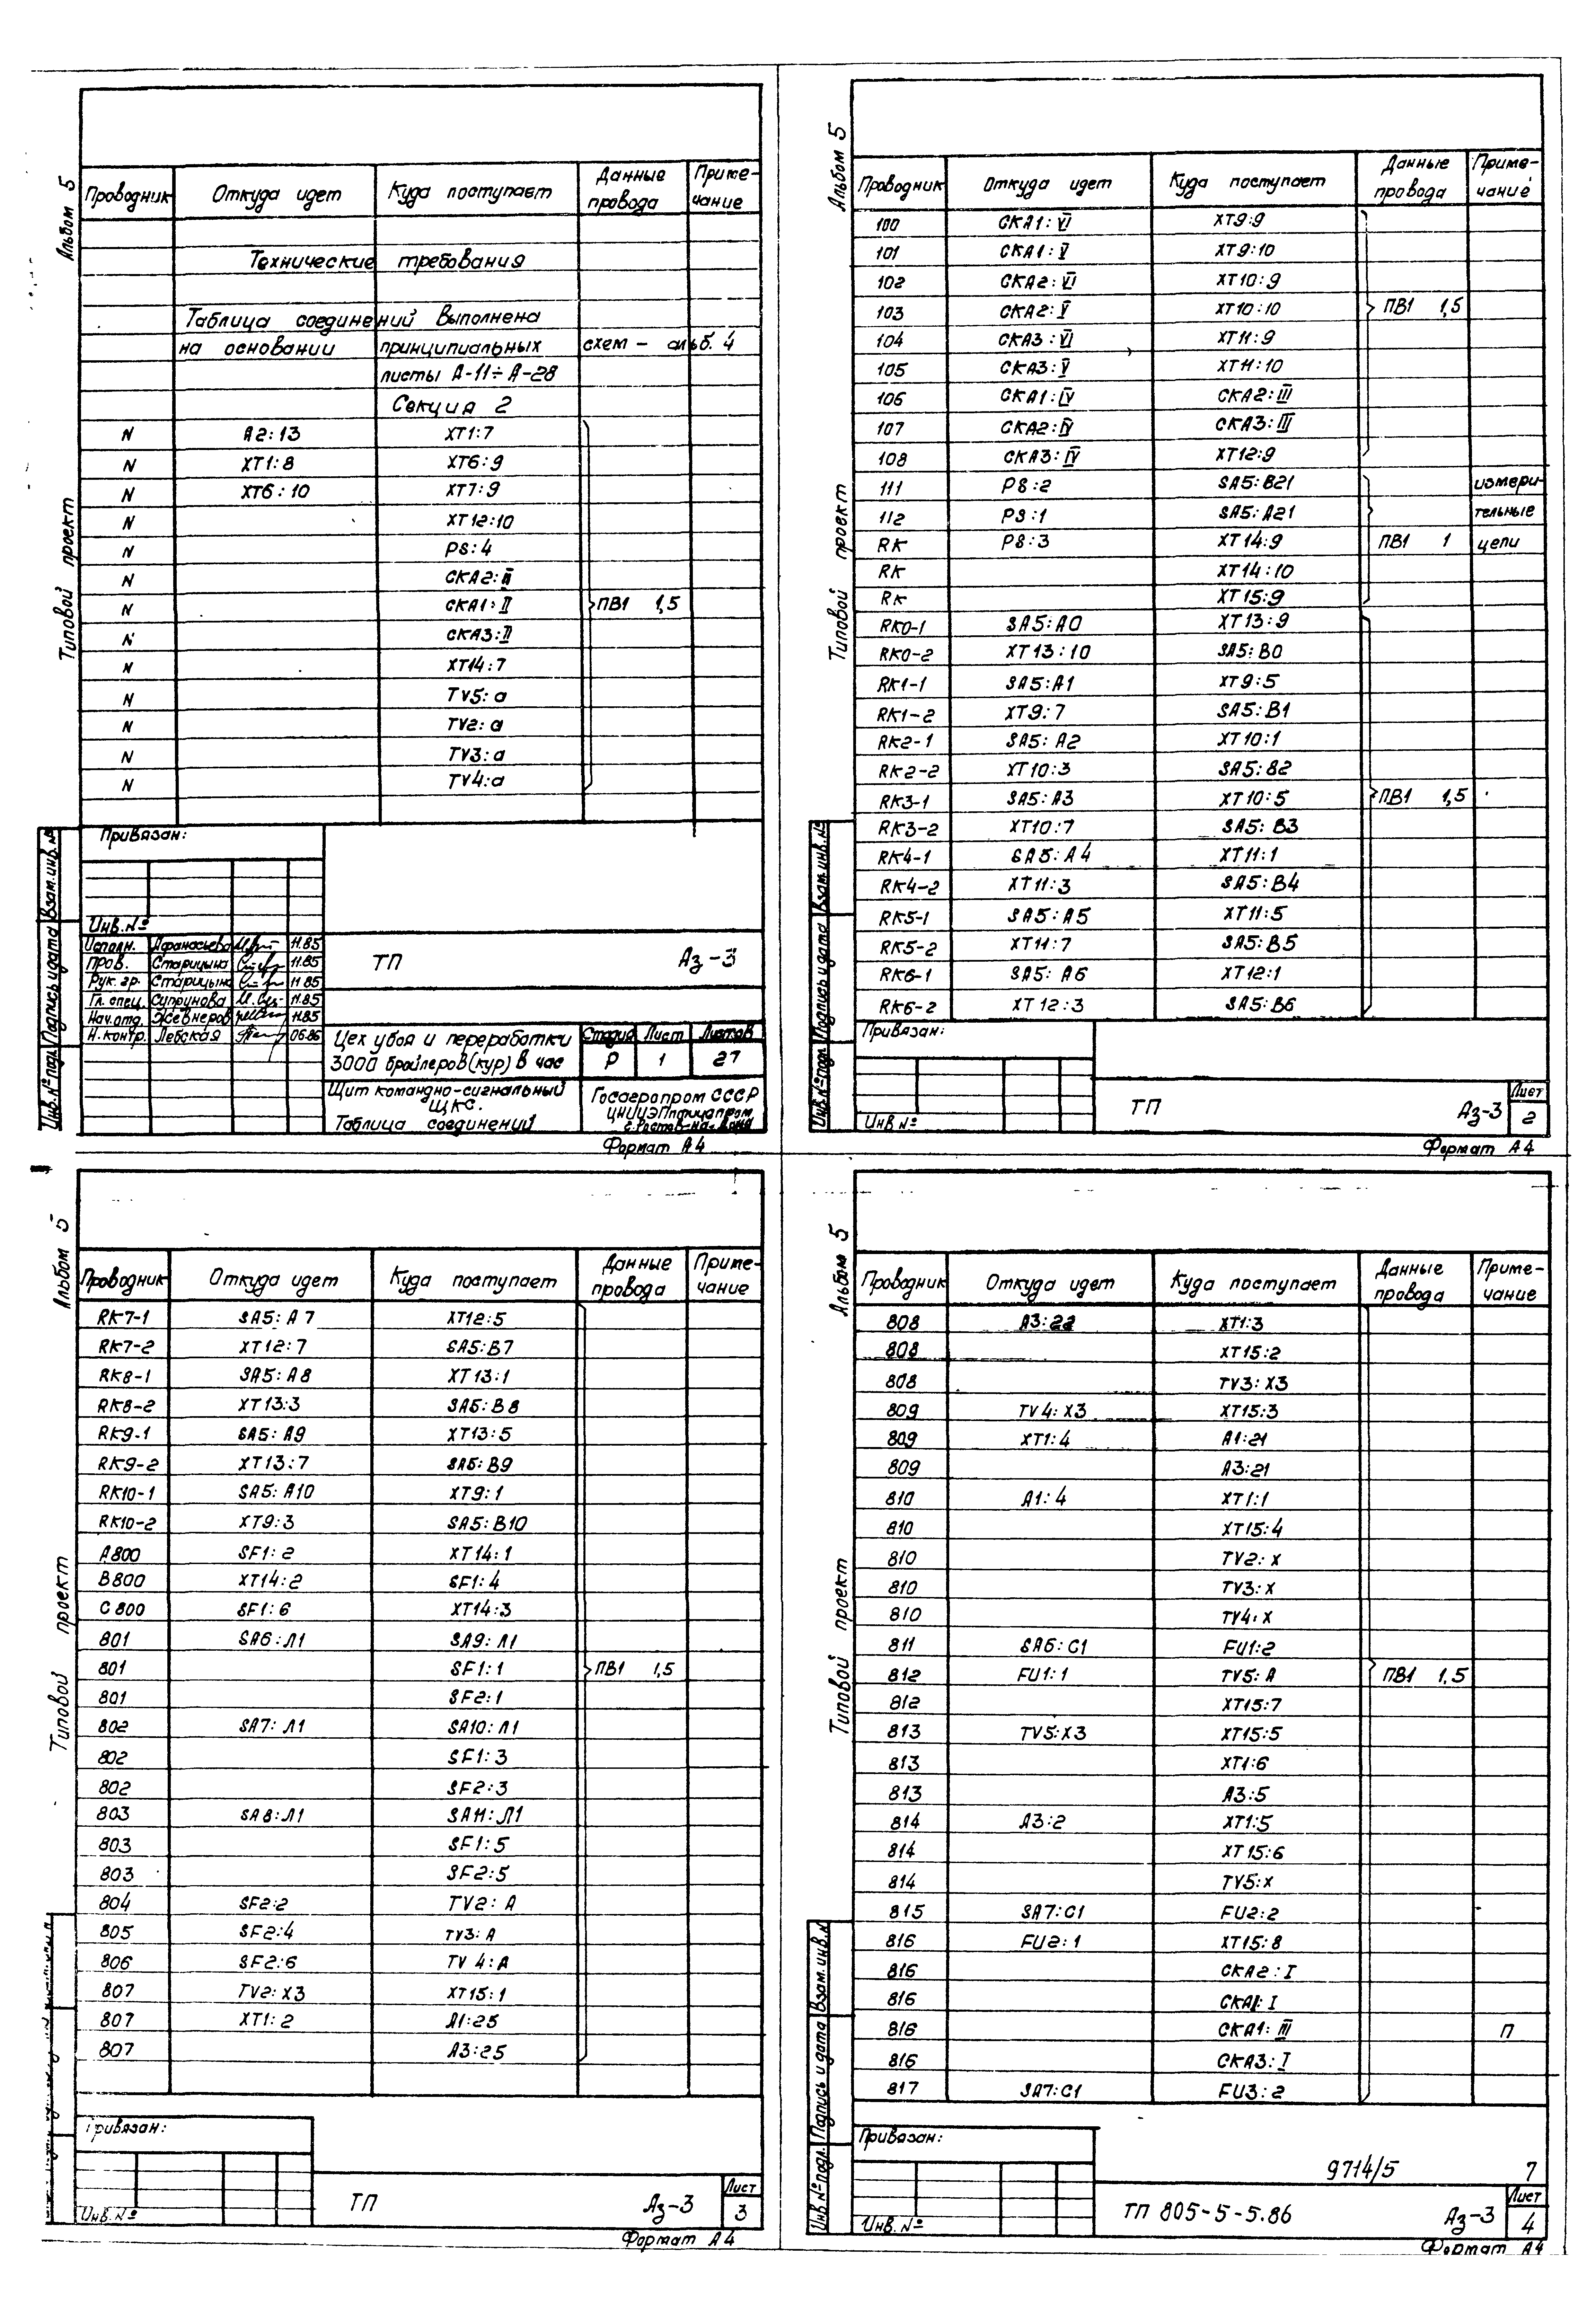 Альбом 5
Типовой проект
Проводник Откуда идет Куда поступает Данные провода Приме-чание
Технические требования
Таблица соединений выполнена
на основании принципиальных схем – альб. 4
листы А-11÷А-28
Секция 2
N А2:13 XT1:7
N XT1:8 XT6:9
N XT6:10 XT7:9
N XT12:10
N PS:4
N СКА2:II
N СКА1:II ПВ1 1,5
N СКА3:II
N XT14:7
N TV5:a
N TV2:a
N TV3:a
N TV4:a
Привязан:
Инв.№
Исполн. Афанасьева 11.85
Пров. Старицына 11.85
Рук. гр. Старицына 11.85
Гл. спец. Супрунова 11.85
Нач.отд. Жевнеров 11.85
Н.контр. Лебская 06.86
ТП Аз-3
Цех убоя и переработки
3000 бройлеров (кур) в час
Стадия Лист Листов
Р 1 27
Щит командно-сигнальный
ЩКС.
Таблица соединений
Госагропром СССР
ЦНИИЭПптицепром
г. Ростов-на-Дону
Инв.№подл. Подпись и дата Взам.инв.№
Формат А4
Альбом 5
Типовой проект
Проводник Откуда идет Куда поступает Данные провода Приме-чание
100 СКА1:VI XT9:9
101 СКА1:V XT9:10
102 СКА2:VI XT10:9
103 СКА2:V XT10:10 ПВ1 1,5
104 СКА3:VI XT11:9
105 СКА3:V XT11:10
106 СКА1:IV СКА2:III
107 СКА2:IV СКА3:III
108 СКА3:IV XT12:9
111 PS:2 SA5:B21 измери-
112 PS:1 SA5:A21 тельные
RK PS:3 XT14:9 ПВ1 1 цепи
RK XT14:10
RK XT15:9
RK0-1 SA5:A0 XT13:9
RK0-2 XT13:10 SA5:B0
RK1-1 SA5:A1 XT9:5
RK1-2 XT9:7 SA5:B1
RK2-1 SA5:A2 XT10:1
RK2-2 XT10:3 SA5:B2
RK3-1 SA5:A3 XT10:5 ПВ1 1,5
RK3-2 XT10:7 SA5:B3
RK4-1 SA5:A4 XT11:1
RK4-2 XT11:3 SA5:B4
RK5-1 SA5:A5 XT11:5
RK5-2 XT11:7 SA5:B5
RK6-1 SA5:A6 XT12:1
RK6-2 XT12:3 SA5:B6
Привязан:
Инв №
ТП Аз-3 Лист 2
Инв.№подл. Подпись и дата Взам.инв.№
Формат А4
Альбом 5
Типовой проект
Проводник Откуда идет Куда поступает Данные провода Приме-чание
RK7-1 SA5:A7 XT12:5
RK7-2 XT12:7 SA5:B7
RK8-1 SA5:A8 XT13:1
RK8-2 XT13:3 SA5:B8
RK9-1 SA5:A9 XT13:5
RK9-2 XT13:7 SA5:B9
RK10-1 SA5:A10 XT9:1
RK10-2 XT9:3 SA5:B10
A800 SF1:2 XT14:1
B800 XT14:2 SF1:4
C800 SF1:6 XT14:3
801 SA6:Л1 SA9:Л1
801 SF1:1 ПВ1 1,5
801 SF2:1
802 SA7:Л1 SA10:Л1
802 SF1:3
802 SF2:3
803 SA8:Л1 SA11:Л1
803 SF1:5
803 SF2:5
804 SF2:2 TV2:A
805 SF2:4 TV3:A
806 SF2:6 TV4:A
807 TV2:X3 XT15:1
807 XT1:2 A1:25
807 A3:25
Привязан:
Инв.№
ТП Аз-3 Лист 3
Формат А4
Альбом 5
Типовой проект
Проводник Откуда идет Куда поступает Данные провода Приме-чание
808 A3:22 XT1:3
808 XT15:2
808 TV3:X3
809 TV4:X3 XT15:3
809 XT1:4 A1:21
809 A3:21
810 A1:4 XT1:1
810 XT15:4
810 TV2:X
810 TV3:X
810 TV4:X
811 SA6:C1 FU1:2
812 FU1:1 TV5:A ПВ1 1,5
812 XT15:7
813 TV5:X3 XT15:5
813 XT1:6
813 A3:5
814 A3:2 XT1:5
814 XT15:6
814 TV5:X
815 SA7:C1 FU2:2
816 FU2:1 XT15:8
816 СКА2:I
816 СКА1:I
816 СКА1:III П
816 СКА3:I
817 SA7:C1 FU3:2
Привязан:
Инв.№
9714/5 7
ТП 805-5-5.86 Аз-3 Лист 4
Инв.№подл. Подпись и дата Взам.инв.№
Формат А4